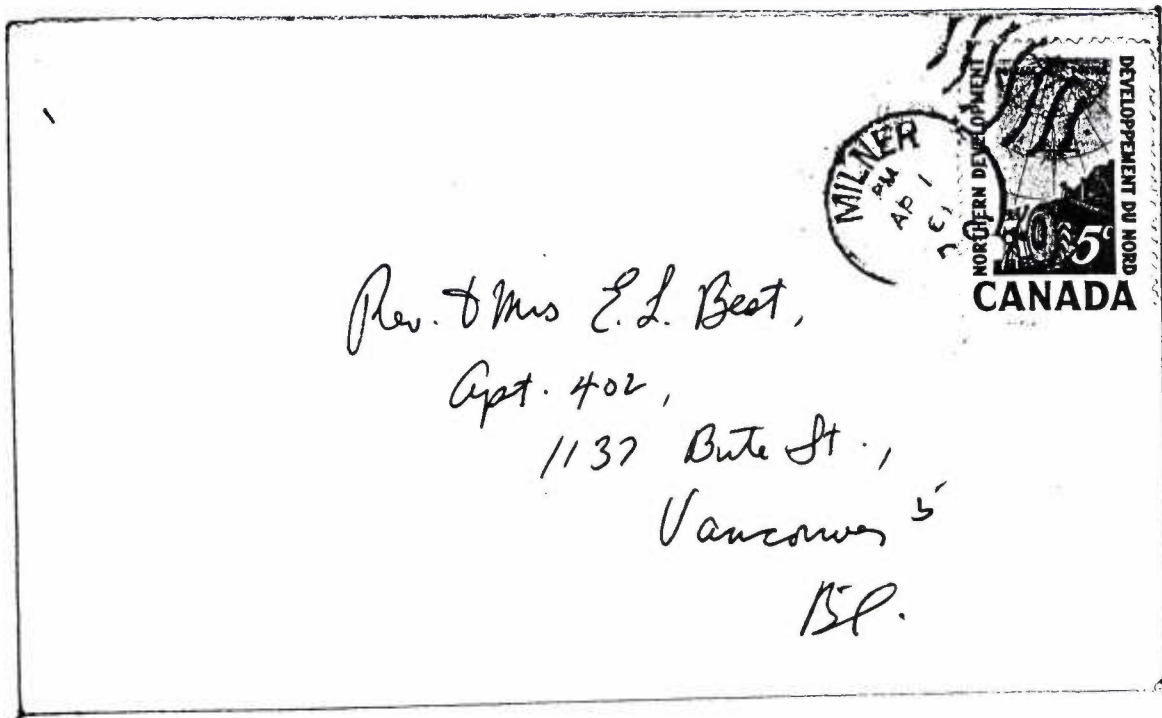 MILNER
PM
AP 1
61
NORTHERN DEVELOPMENT
DÉVELOPPEMENT DU NORD
5¢
CANADA
Rev. & Mrs E. L. Best,
Apt. 402,
1137 Bute St.,
Vancouver 5
B.C.